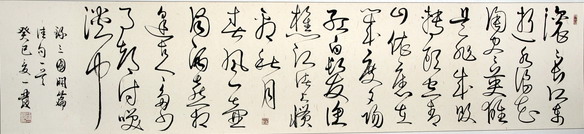 滚滚长江东
逝水浪花
淘尽英雄
是非成败
转头空青
山依旧在
几度夕阳
红白发渔
樵江渚上惯
看秋月
春风一壶
浊酒喜相
逢古今多少
事都付笑
谈中
录三国开篇
佳句一首
癸巳夏一霞